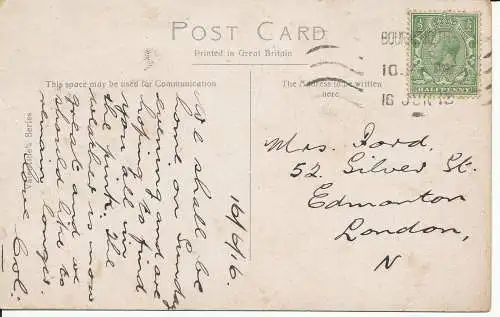 POST CARD
Printed in Great Britain
This space may be used for Communication
The Address to be written
here.
HALFPENNY
16 JUN 16
Valentine's Series
16/6/16.
We shall be
home on Sunday
evening and are
hoping to find
you all in
the pink. The
weather is now
great and we
should like to
remain longer.
Love
Mrs. Ford,
52, Silver St.
Edmonton
London,
N